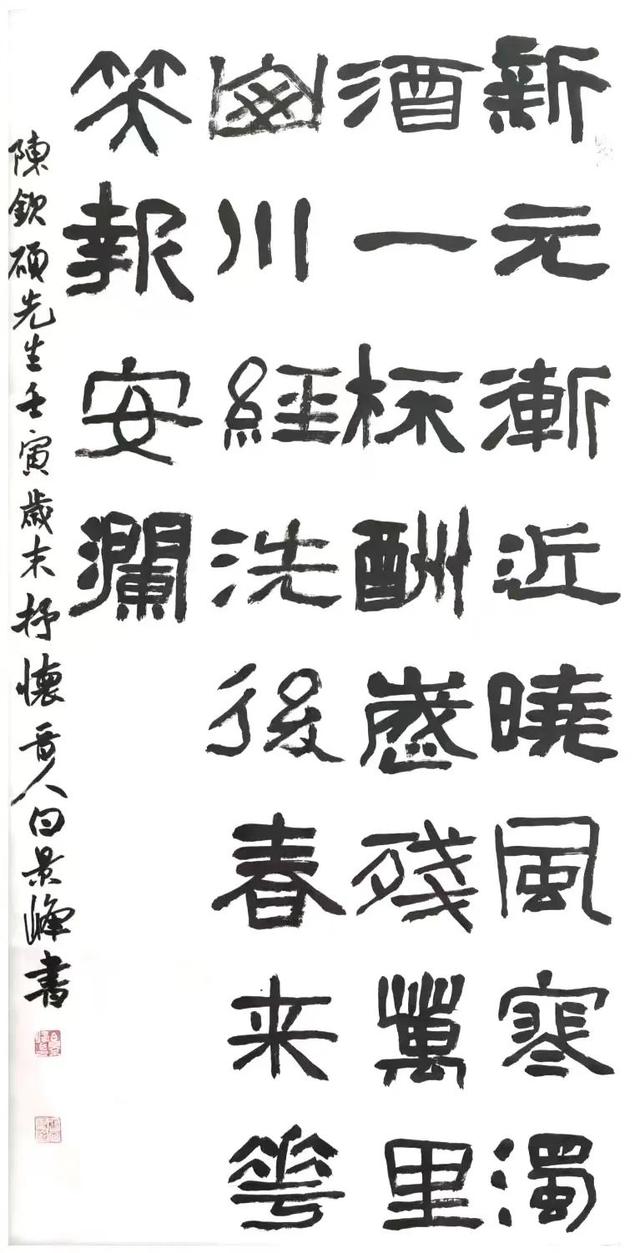 新元漸近曉風寒濁
酒一杯酬歲殘萬里
川經洗後春来花
笑報安瀾
陳欽碩先生壬寅歲末抒懷晉人白景峰書